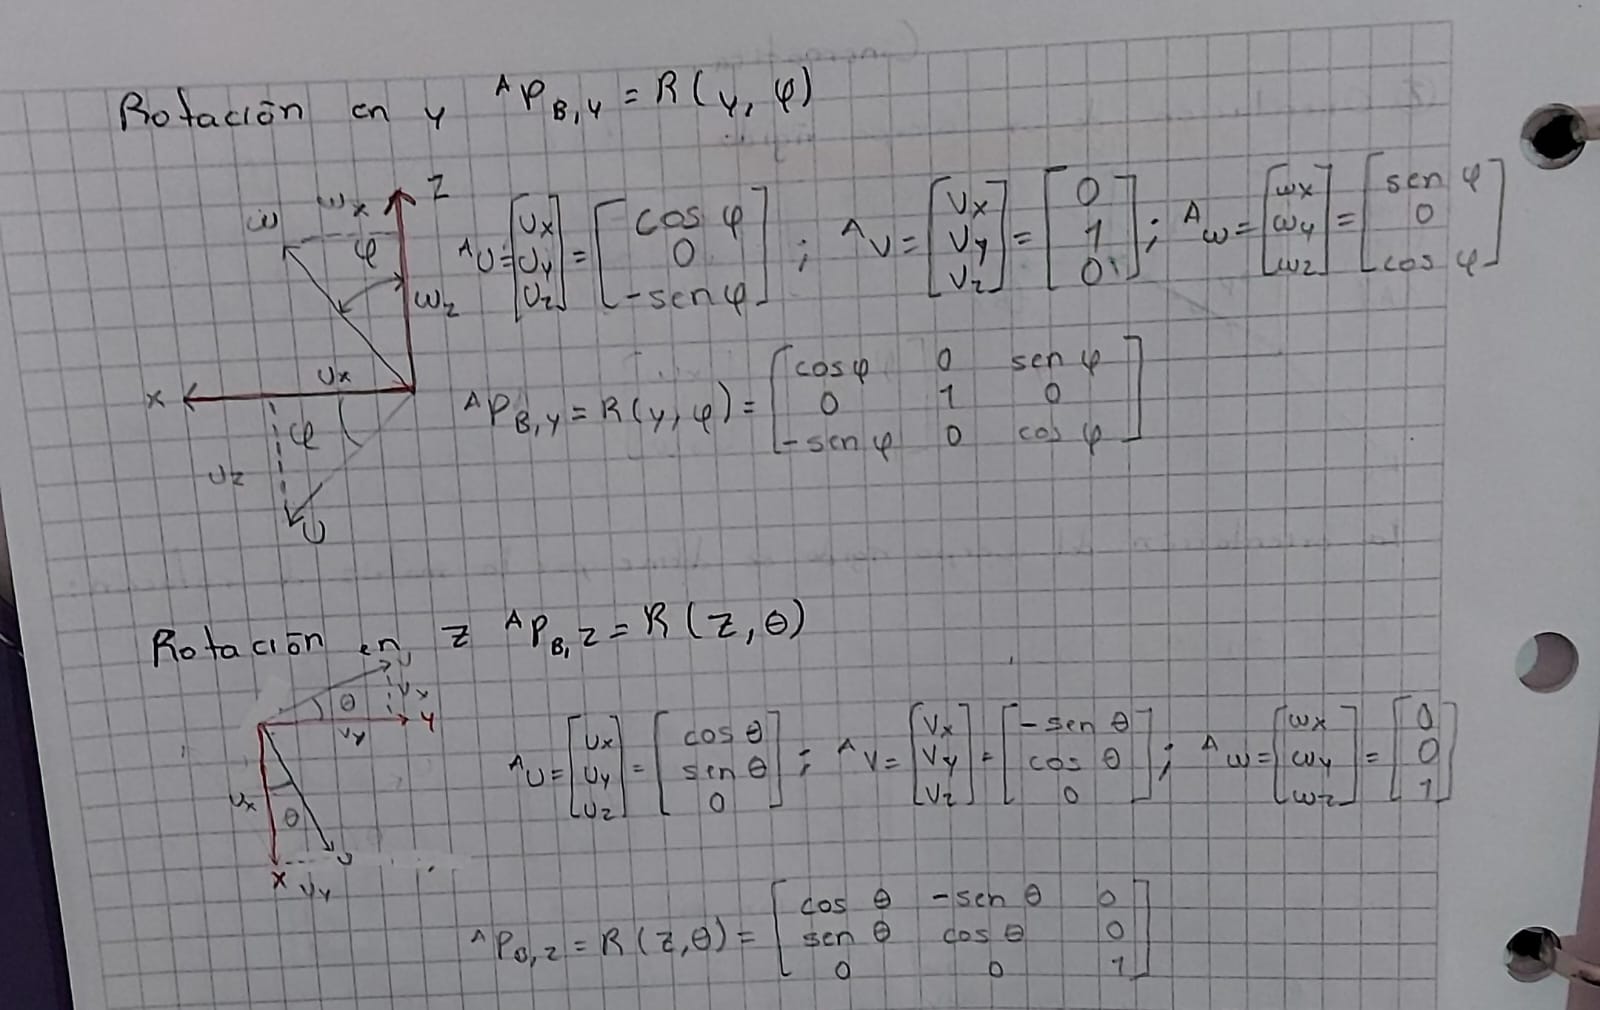 Rotación en y ᴬP_B,y = R(y, φ)
ω ωx Z
φ
ωz
ᴬU = [Ux Uy Uz] = [cos φ 0 -sen φ] ; ᴬV = [Vx Vy Vz] = [0 1 0] ; ᴬω = [ωx ωy ωz] = [sen φ 0 cos φ]
x Ux
φ
Uz
U
ᴬP_B,y = R(y, φ) = [cos φ 0 sen φ
0 1 0
-sen φ 0 cos φ]
Rotación en z ᴬP_B,z = R(z, θ)
θ Vx
Vy y
ᴬU = [Ux Uy Uz] = [cos θ sen θ 0] ; ᴬV = [Vx Vy Vz] = [-sen θ cos θ 0] ; ᴬω = [ωx ωy ωz] = [0 0 1]
Ux
θ
U
x
ᴬP_B,z = R(z, θ) = [cos θ -sen θ 0
sen θ cos θ 0
0 0 1]